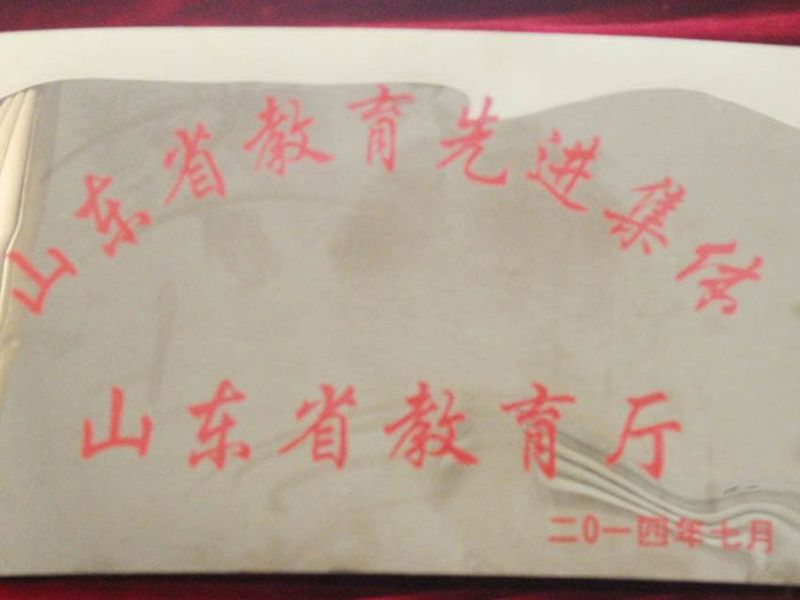 山东省教育先进集体
山东省教育厅
二0一四年七月